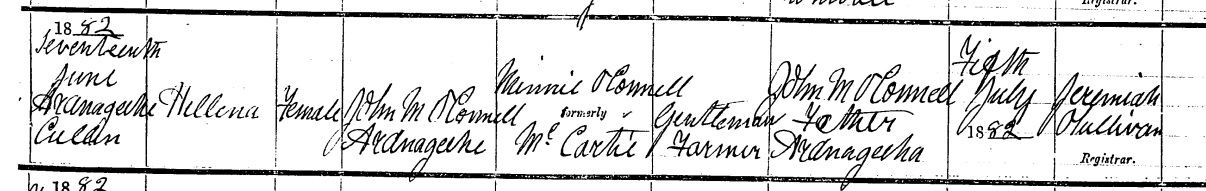 1882
Seventeenth
June
Ardnageehe
Cullen
Hellena
Female
John M O'Connell
Ardnageehe
Minnie O'Connell
formerly
Mc Cartie
Gentleman
Farmer
John M O'Connell
Father
Ardnageeha
Fifth
July
1882
Jeremiah
O'Sullivan
Registrar.
Registrar.
1882